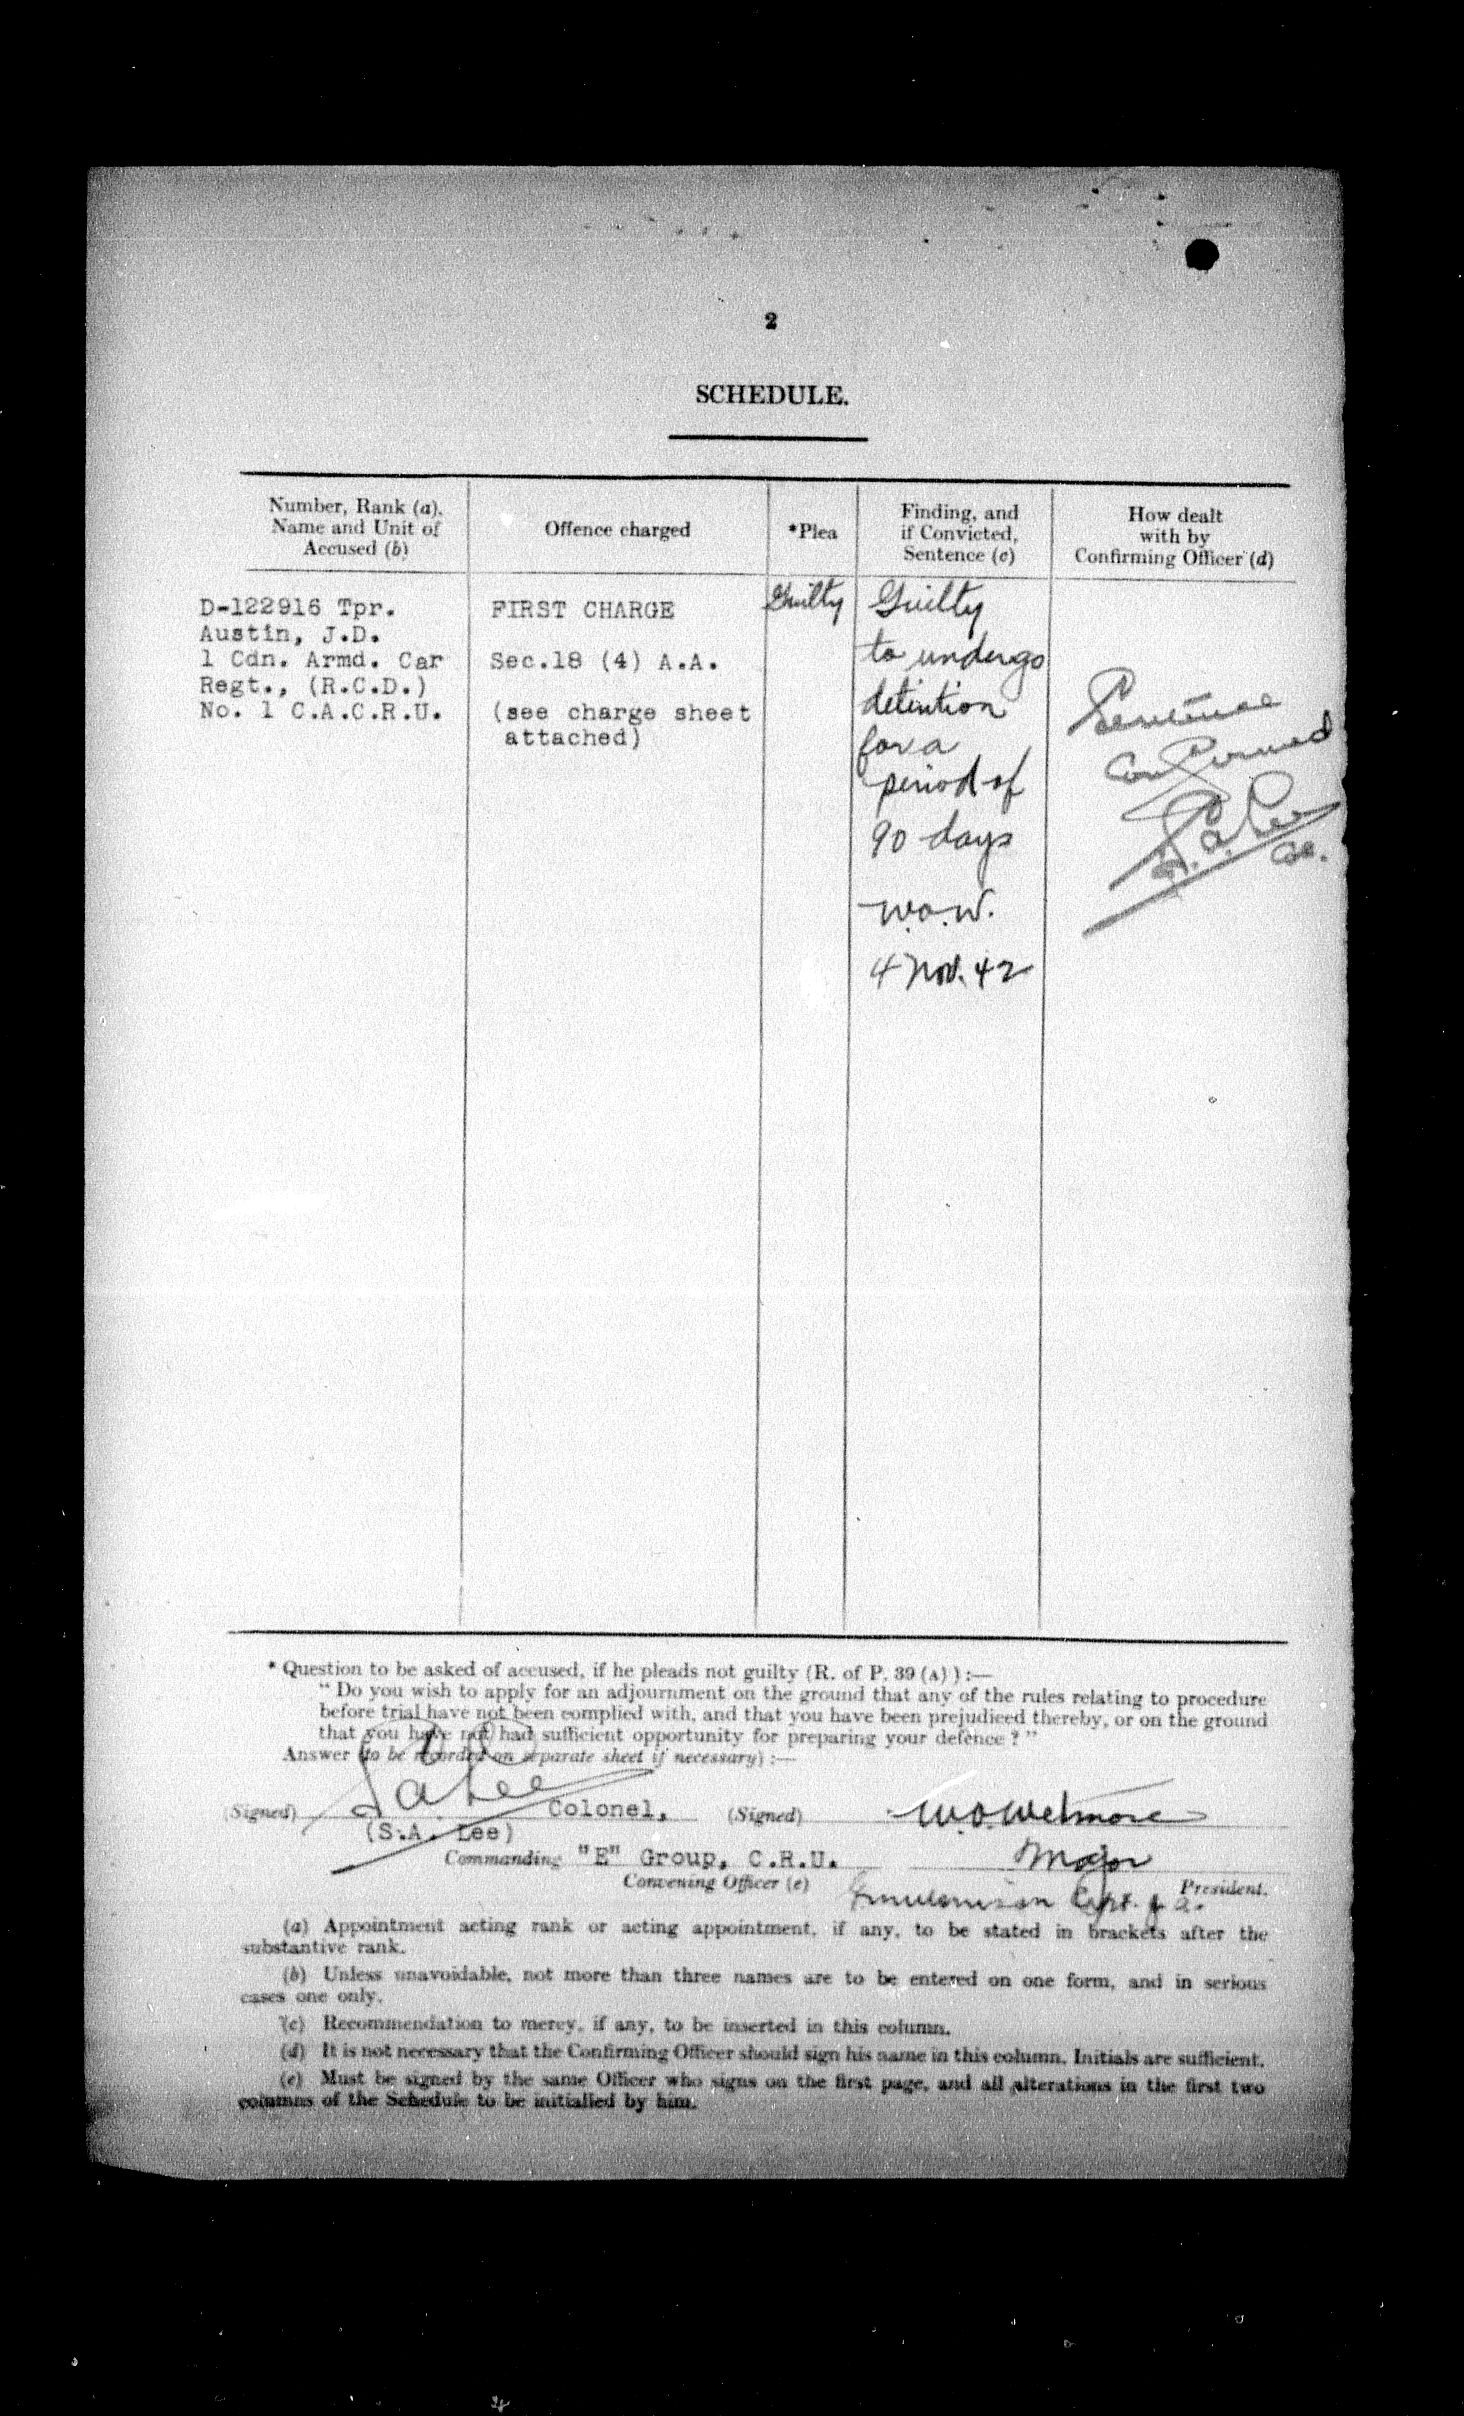 2
SCHEDULE.
Number, Rank (a),
Name and Unit of
Accused (b)
Offence charged
*Plea
Finding, and
if Convicted,
Sentence (c)
How dealt
with by
Confirming Officer (d)
D-122916 Tpr.
Austin, J.D.
1 Cdn. Armd. Car
Regt., (R.C.D.)
No. 1 C.A.C.R.U.
FIRST CHARGE
Sec.18 (4) A.A.
(see charge sheet
attached)
Guilty
Guilty
to undergo
detention
for a
period of
90 days
W.O.W.
4 Nov. 42
Sentence
Confirmed
S.A. Lee
Col.
* Question to be asked of accused, if he pleads not guilty (R. of P. 39 (A) ) :—
" Do you wish to apply for an adjournment on the ground that any of the rules relating to procedure
before trial have not been complied with, and that you have been prejudiced thereby, or on the ground
that you have not had sufficient opportunity for preparing your defence ? "
Answer (to be recorded on separate sheet if necessary) :—
(Signed) S A Lee Colonel, (Signed) W.O. Wetmore
(S.A. Lee)
Major
Commanding "E" Group, C.R.U.
Convening Officer (e)
President.
Capt. J.A.
(a) Appointment acting rank or acting appointment, if any, to be stated in brackets after the
substantive rank.
(b) Unless unavoidable, not more than three names are to be entered on one form, and in serious
cases one only.
(c) Recommendation to mercy, if any, to be inserted in this column.
(d) It is not necessary that the Confirming Officer should sign his name in this column. Initials are sufficient.
(e) Must be signed by the same Officer who signs on the first page, and all alterations in the first two
columns of the Schedule to be initialled by him.